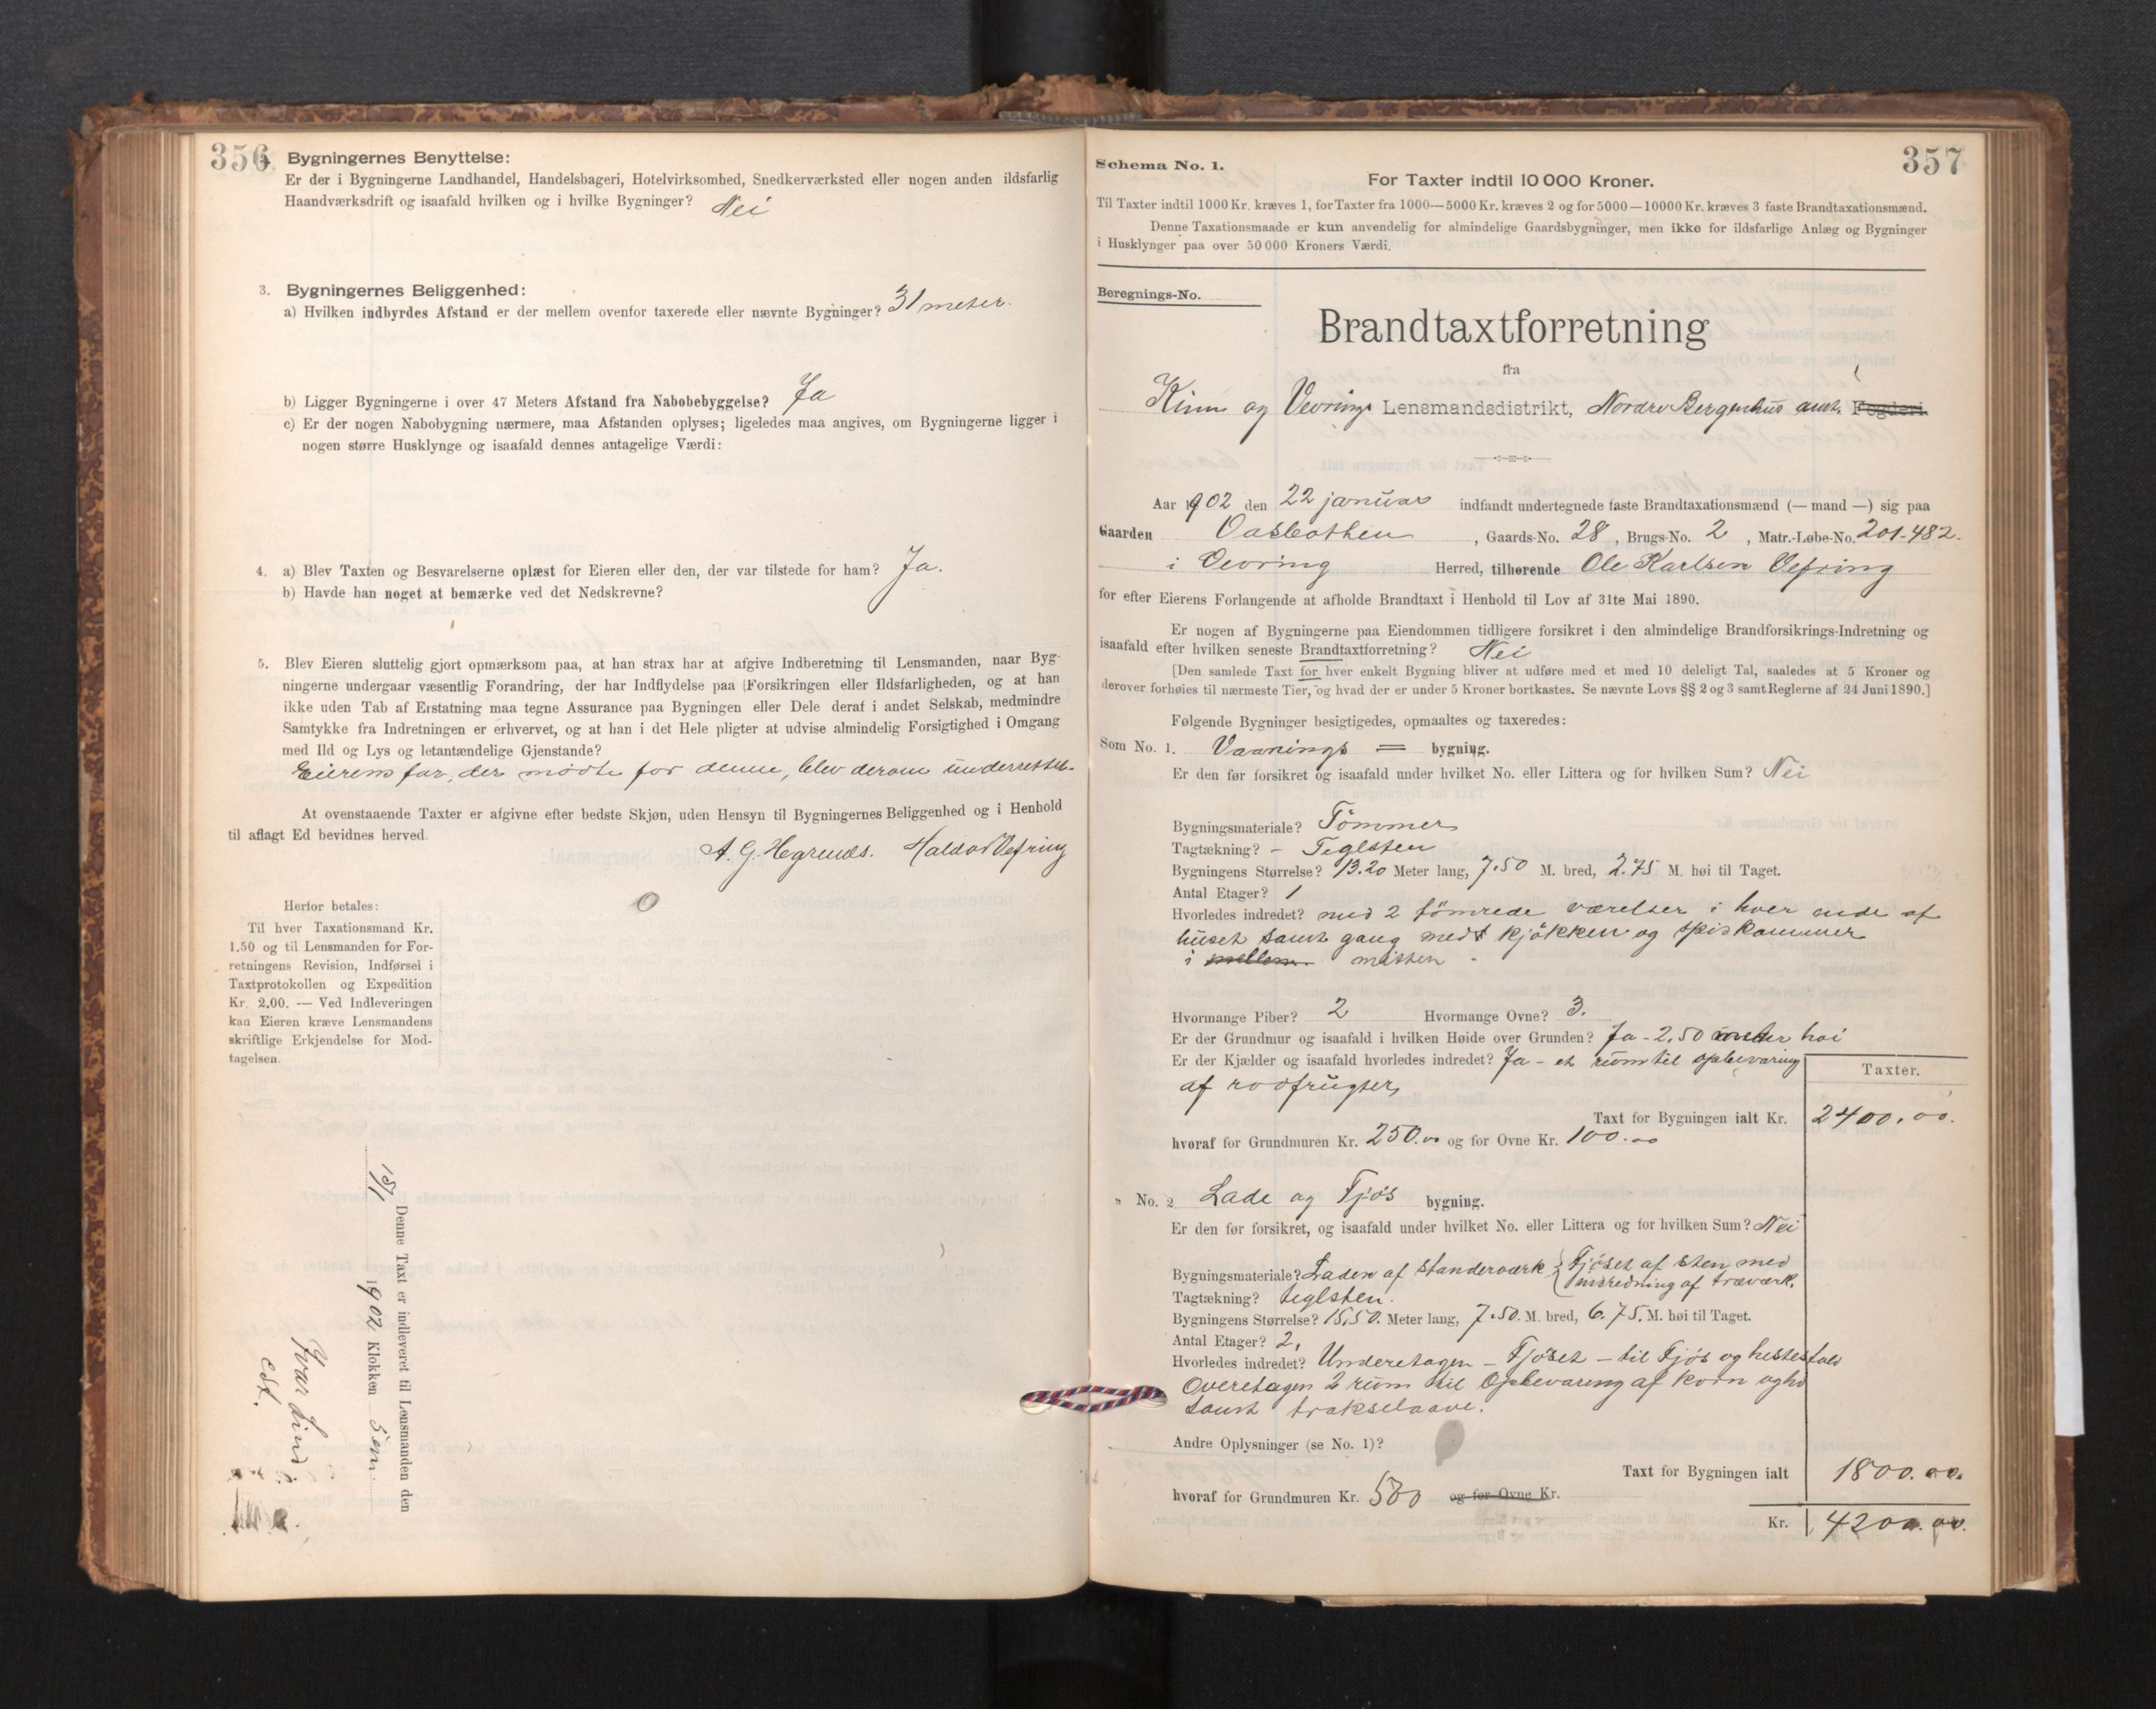 356
Bygningernes Benyttelse:
Er der i Bygningerne Landhandel, Handelsbageri, Hotelvirksomhed, Snedkerværksted eller nogen anden ildsfarlig
Haandværksdrift og isaafald hvilken og i hvilke Bygninger? Nei
3. Bygningernes Beliggenhed:
a) Hvilken indbyrdes Afstand er der mellem ovenfor taxerede eller nævnte Bygninger? 31 meter.
b) Ligger Bygningerne i over 47 Meters Afstand fra Nabobebyggelse? Ja
c) Er der nogen Nabobygning nærmere, maa Afstanden oplyses; ligeledes maa angives, om Bygningerne ligger i
nogen større Husklynge og isaafald dennes antagelige Værdi:
4. a) Blev Taxten og Besvarelserne oplæst for Eieren eller den, der var tilstede for ham? Ja.
b) Havde han noget at bemærke ved det Nedskrevne?
5. Blev Eieren sluttelig gjort opmærksom paa, at han strax har at afgive Indberetning til Lensmanden, naar Byg-
ningerne undergaar væsentlig Forandring, der har Indflydelse paa Forsikringen eller Ildsfarligheden, og at han
ikke uden Tab af Erstatning maa tegne Assurance paa Bygningen eller Dele deraf i andet Selskab, medmindre
Samtykke fra Indretningen er erhvervet, og at han i det Hele pligter at udvise almindelig Forsigtighed i Omgang
med Ild og Lys og letantændelige Gjenstande?
Eierens far, der mødte for denne, blev derom underrettet.
At ovenstaaende Taxter er afgivne efter bedste Skjøn, uden Hensyn til Bygningernes Beliggenhed og i Henhold
til aflagt Ed bevidnes herved.
A. G. Hegrenæs. Haldor Vefring
Herfor betales:
Til hver Taxationsmand Kr.
1,50 og til Lensmanden for For-
retningens Revision, Indførsel i
Taxtprotokollen og Expedition
Kr. 2,00. — Ved Indleveringen
kan Eieren kræve Lensmandens
skriftlige Erkjendelse for Mod-
tagelsen.
Denne Taxt er indleveret til Lensmanden den
1902 Klokken 5 em.
Ivar Lind
cst.
357
Schema No. 1.
For Taxter indtil 10 000 Kroner.
Til Taxter indtil 1000 Kr. kræves 1, for Taxter fra 1000—5000 Kr. kræves 2 og for 5000—10000 Kr. kræves 3 faste Brandtaxationsmænd.
Denne Taxationsmaade er kun anvendelig for almindelige Gaardsbygninger, men ikke for ildsfarlige Anlæg og Bygninger
i Husklynger paa over 50 000 Kroners Værdi.
Beregnings-No.
Brandtaxtforretning
fra
Kinn og Vevrings Lensmandsdistrikt, Nordre Bergenhus amt. Fogderi.
Aar 1902 den 22 januar indfandt undertegnede faste Brandtaxationsmænd (— mand —) sig paa
Gaarden Vasbotten, Gaards-No. 28, Brugs-No. 2, Matr.-Løbe-No. 201-482.
i Vevring Herred, tilhørende Ole Karlsen Vefring
for efter Eierens Forlangende at afholde Brandtaxt i Henhold til Lov af 31te Mai 1890.
Er nogen af Bygningerne paa Eiendommen tidligere forsikret i den almindelige Brandforsikrings-Indretning og
isaafald efter hvilken seneste Brandtaxtforretning? Nei
[Den samlede Taxt for hver enkelt Bygning bliver at udføre med et med 10 deleligt Tal, saaledes at 5 Kroner og
derover forhøies til nærmeste Tier, og hvad der er under 5 Kroner bortkastes. Se nævnte Lovs §§ 2 og 3 samt Reglerne af 24 Juni 1890.]
Følgende Bygninger besigtigedes, opmaaltes og taxeredes:
Som No. 1. Vaanings = bygning.
Er den før forsikret og isaafald under hvilket No. eller Littera og for hvilken Sum? Nei
Bygningsmateriale? Tömmer
Tagtækning? – Teglsten
Bygningens Størrelse? 13.20 Meter lang, 7.50 M. bred, 2.75 M. høi til Taget.
Antal Etager? 1
Hvorledes indredet? med 2 tömrede værelser i hver ende af
huset samt gang med kjökken og spiskammer
i mellem midten -
Hvormange Piber? 2 Hvormange Ovne? 3.
Er der Grundmur og isaafald i hvilken Høide over Grunden? Ja - 2,50 meter høi
Er der Kjælder og isaafald hvorledes indredet? Ja - et rum til opbevaring
af rodfrugter,
Taxter.
Taxt for Bygningen ialt Kr. 2400.00.
hvoraf for Grundmuren Kr. 250.00 og for Ovne Kr. 100.00
" No. 2. Lade og Fjøs bygning.
Er den før forsikret, og isaafald under hvilket No. eller Littera og for hvilken Sum? Nei
Bygningsmateriale? Laden af standerværk { Fjøset af sten med
indredning af træværk.
Tagtækning? teglsten.
Bygningens Størrelse? 15,50. Meter lang, 7.50. M. bred, 6.75. M. høi til Taget.
Antal Etager? 2,
Hvorledes indredet? Underetagen - Fjøset - til Fjøs og hestestald
Overetagen 2 rum til Opbevaring af korn og hø
samt trakselaave.
Andre Oplysninger (se No. 1)?
Taxt for Bygningen ialt 1800.00.
hvoraf for Grundmuren Kr. 500 og for Ovne Kr.
Kr. 4200.00.